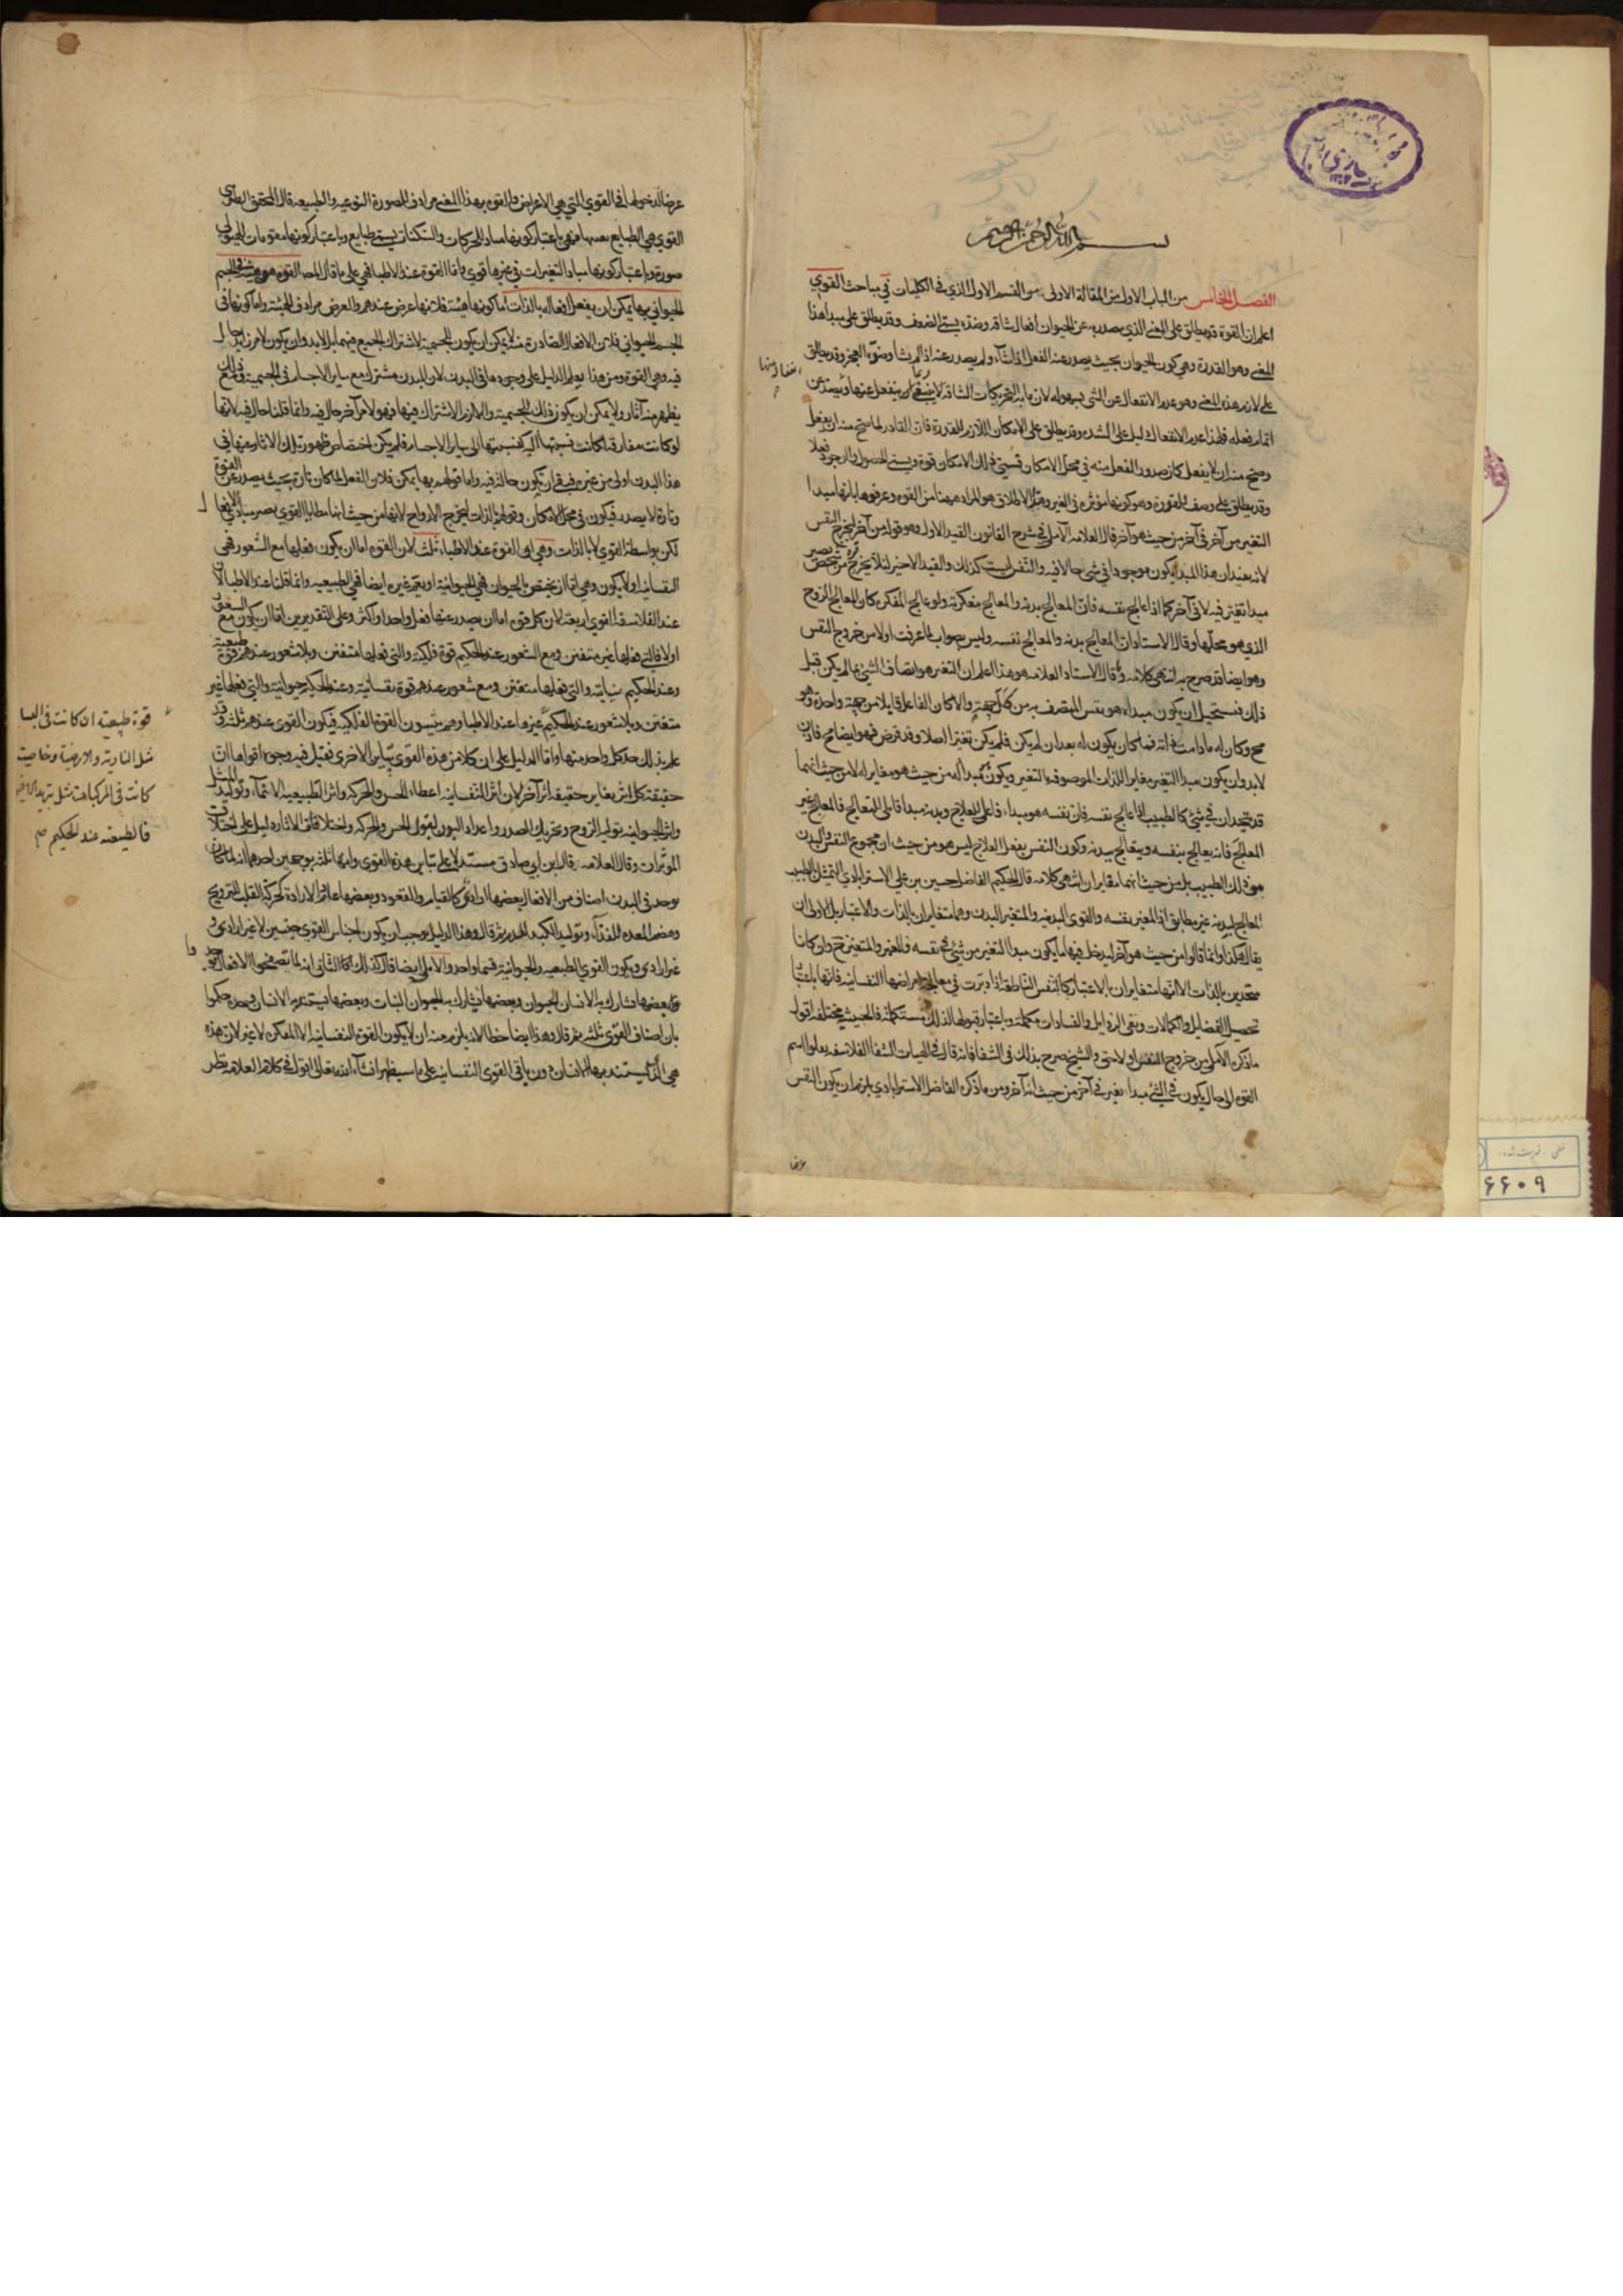 بسم الله الرحمن الرحيم
الفصل الخامس من الباب الاول من المقالة الاولى من القسم الاول الذي في الكليات في مباحث القوي
اعلم ان القوة قد يطلق على المعنى الذي يصدر به عن الحيوان افعال شاقه وضده يسمى الضعف وقد يطلق على مبدا هذا
المعنى وهو القدرة وهي كون الحيوان بحيث يصدر عنه الفعل اذا شآء ولم يصدر عنه اذا لم يشا وضده العجز وقد يطلق
على لازم هذا المعنى وهو عدم الانفعال عن الشي بسهوله لان مباشر التحريكات الشاقه
اتمام فعله فلهذا عدم الانفعال دليل على الشده وقد يطلق على الامكان اللازم للقدرة فان القادر لما صح منه ان يفعل
وصح منه ان لا يفعل كان صدور الفعل منه في محل الامكان فسمى ذلك الامكان قوة ويسمى الحصول والوجود فعلا
وقد يطلق على وصف للقدرة وهو كونها مؤثرة في الغير وهذا الاطلاق هو المراد ههنا من القوة وعرفوها بانها مبدا
التغير من آخر في آخر من حيث هو آخر قال العلامه الآملي في شرح القانون القيد الاول وهو قوله من آخر ليخرج النفس
لانه يفيد ان هذا المبدا يكون موجودا في شى حالا فيه والنفس ليست كذلك والقيد الاخير لئلا يخرج
مبدا تغير فيه لا في آخر كما اذا عالج نفسه فان المعالج بدنه والمعالج مفكرته ولو عالج المفكره كان المعالج الروح
الذي هو محلها وقال الاستاد ان المعالج بدنه والمعالج نفسه وليس بصواب لما عرفت اولا من خروج النفس
وهو ايضا قد صرح به انتهى كلامه وقال الاستاد العلامه هو هذا اعلم ان التغير هو اتصاف الشئ بما لم يكن قبل
ذلك فيستحيل ان يكون مبداء هو نفس المتصف به من كل جهة والا كان الفاعل قابلا من جهة واحدة وهو
مح وكان له ما دامت ذاته فما كان يكون له بعد ان لم يكن فلم يكن تغيرا اصلا وقد فرض فهو ايضا مح فاذن
لابد وان يكون مبدا التغير مغايرا للذات الموصوفة بالتغير ويكون مبدأ له من حيث هو مغاير له لا من حيث انهما
قد يتحدان في شئ كالطبيب اذا عالج نفسه فان نفسه هو مبداء فاعلى للعلاج وبدنه مبدا قابلى للتعالج فالمعالج غير
المعالج فانه يعالج بنفسه ويتعالج ببدنه وكون النفس يفعل العلاج ليس هو من حيث ان مجموع النفس والبدن
هو ذلك الطبيب بل من حيث انهما متغايران انتهى كلامه قال الحكيم الفاضل حسين بن علي الاسترابادي التمثيل بالطبيب
المعالج لبدنه غير مطابق اذ المغير نفسه والقوى البدنيه والمتغير البدن وهما متغايران بالذات والاعتبار بل الاولى ان
يقال هكذا وانما قالوا من حيث هو آخر ليدخل فيها ما يكون مبدا التغير من شئ في نفسه والمغير والمتغير ح وان كانا
متحدين بالذات الا انهما متغايران بالاعتبار كالنفس الناطقة اذا دبرت في معالجة امراضها النفسانيه فانها باعتبار
تحصيل الفضايل والكمالات ونفى الرذايل والفسادات مكملة وباعتبار قبولها لذلك مستكملة فالحيثية مختلفة اقول
ما ذكره الآملي من خروج النفس اولا حق والشيخ صرح بذلك في الشفا فانه قال في الهيات الشفا الفلاسفه نقلوا اسم
القوه الى حال يكون في الشئ مبداء تغير في آخر من حيث انه آخر ومن ما ذكره الفاضل الاسترابادي يلزم ان يكون النفس
عرضا لدخولها في القوي التي هي الاعراض والقوه بهذا المعنى مرادف للصورة النوعيه والطبيعه قال المحقق الطوسي
القوي هي الطبايع بعينها فهي باعتبار كونها مبادى للحركات والسكنات يسمى طبايع وباعتبار كونها مقومات للهيولى
صورة وباعتبار كونها مبادى التغيرات في غيرها قوي واما القوة عند الاطبا فهي على ما قال المص القوه هي هيئة في الجسم
الحيواني بها يمكن ان يفعل افعاله بالذات اما كونها هيئة فلانها عرض عندهم والعرض مرادف للهيئة واما كونها في
الجسم الحيواني فلان الافعال الصادرة منه لا يمكن ان يكون للجسمية لاشتراك الجميع فيها بل لابد وان يكون لامر زايد حال
فيه وهي القوة ومن هذا يعلم الدليل على وجودها في البدن لان البدن مشترك مع ساير الاجسام في الجسمية
يظهر منه آثار ولا يمكن ان يكون ذلك للجسمية والا لزم الاشتراك فيها فهو لامر آخر حال فيه وانما قلنا حال فيه لانها
لو كانت مفارقه لكانت نسبتها اليه كنسبتها الى ساير الاجسام فلم يكن اختصاص ظهور تلك الاثار عنها في
هذا البدن اولى من غيره فبقي ان يكون حالة فيه واما قولهم بها يمكن فلان الفعل لما كان تارة بحيث يصدر عن القوة
وتارة لا يصدر فيكون في محل الامكان وقولهم بالذات ليخرج الارواح لانها من حيث انها مطايا القوي يصير مبادى الافعال
لكن بواسطة القوي لا بالذات وهي اى القوة عند الاطباء ثلث لان القوه اما ان يكون فعلها مع الشعور فهى
النفسانيه او لا يكون وهي اما ان يختص بالحيوان فهي الحيوانية او يعم غيره ايضا فهي الطبيعيه وانما قلنا عند الاطبا لان
عند الفلاسفة القوي اربعة لان كل قوه اما ان يصدر عنها فعل واحد او اكثر وعلى التقديرين اما ان يكون مع الشعور
او لا فالتي فعلها غير متفنن ومع الشعور عند الحكيم قوة فلكية والتي فعلها متفنن وبلا شعور عندهم قوة طبيعية
وعند الحكيم نباتية والتي فعلها متفنن ومع شعور عندهم قوة نفسانية وعند الحكيم حيوانية والتي فعلها غير
متفنن وبلا شعور عند الحكيم
علم بذلك حد كل واحد منها واما الدليل على ان كلا من هذه القوي يباين الاخرى فقيل فيه وجوه اقواها ان
حقيقة كل اثر يغاير حقيقة اثر آخر لان اثر النفسانيه اعطاء الحس والحركه واثر الطبيعيه الانمآء وتوليد المثل
واثر الحيوانيه توليد الروح وتحريك الصدر واعداد البدن لقبول الحس والحركه واختلاف الاثار دليل على اختلاف
المؤثرات وقال العلامه قال ابن ابي صادق مستدلا على تباين هذه القوي وانها ثلثه بوجهين احدهما انه لما كان
يوجد في البدن اصناف من الافعال بعضها ارادى كالقيام والقعود وبعضها عادم الارادة كحركة القلب للترويح
وهضم المعدة للغذآء وتوليد الكبد الدم ثم قال وهذا الدليل يوجب ان يكون اجناس القوي جنسين لا غير ارادى
غير ارادى ويكون القوي الطبيعيه والحيوانية قسما واحدا والاملى ايضا قال كذلك الثانى انه لما تصفحوا الافعال
بعضها يشارك به الانسان الحيوان وبعضها يشارك به الحيوان النبات وبعضها يستبد به الانسان وحده حكموا
بان اصناف القوي ثلثه ثم قال وهذا ايضا خطا لانه يلزم منه ان لا يكون القوة النفسانيه الا المفكره لا غير لان هذه
هي التي يستبد بها الانسان دون باقى القوي النفسانيه على ما سيظهر انشآء الله تعالى اقول في كلام العلامه نظر
قوة طبيعية ان كانت فى البسا
مثل النارية والارضية وخاصية
كانت فى المركبات مثل تبريد الافيون
فالطبيعه عند الحكيم صح
عرضا
۶۶۰۹